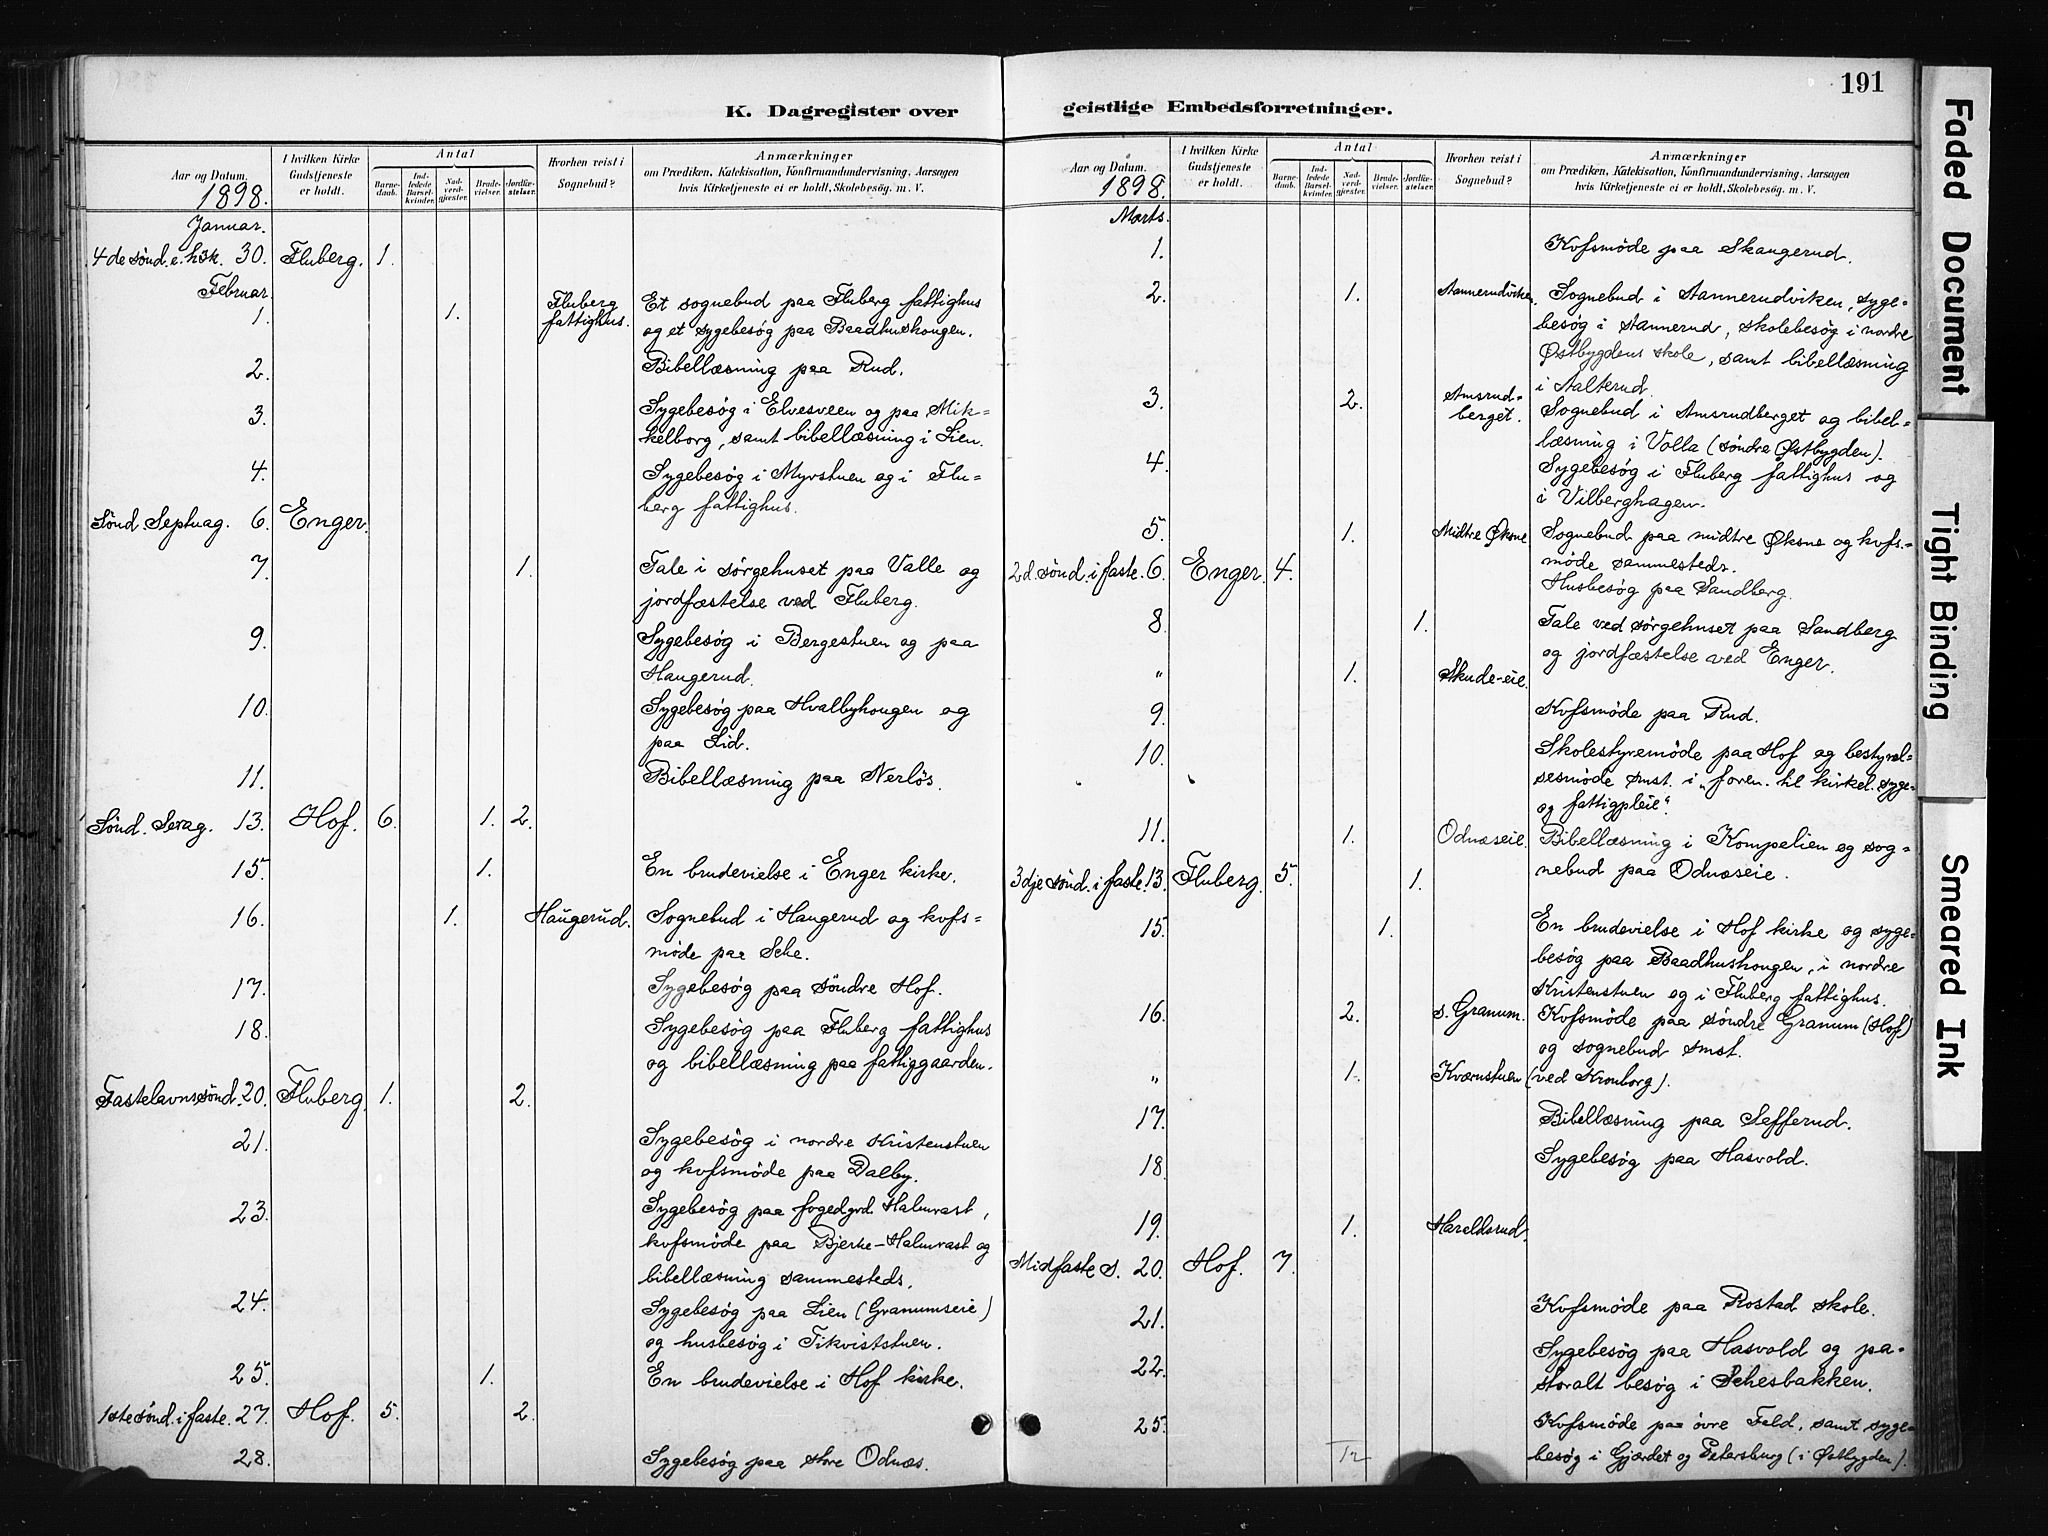 191
K. Dagregister over
geistlige Embedsforretninger.
Aar og Datum.
1898.
I hvilken Kirke
Gudstjeneste
er holdt.
Antal
Barne-
daab.
Ind-
ledede
Barsel-
kvinder.
Nad-
verd-
gjæster.
Brude-
vielser.
Jordfæ-
stelser.
Hvorhen reist i
Sognebud?
Anmærkninger
om Prædiken, Katekisation, Konfirmandundervisning, Aarsagen
hvis Kirketjeneste ei er holdt, Skolebesøg. m. V.
Januar.
4de sønd. e. h3k. 30. Fluberg. 1.
Februar.
1. 1. Fluberg fattighus. Et sognebud paa Fluberg fattighus
og et sygebesøg paa Baadhushougen.
2. Bibellæsning paa Rud.
3. Sygebesøg i Elvesveen og paa Mik=
kelborg, samt bibellæsning i Lien.
4. Sygebesøg i Myrstuen og i Flu=
berg fattighus.
Sønd. Septuag. 6. Enger.
7. 1. Tale i sørgehuset paa Valle og
jordfæstelse ved Fluberg.
9. Sygebesøg i Bergestuen og paa
Haugerud.
10. Sygebesøg paa Hvalbyhougen og
paa Lid.
11. Bibellæsning paa Nerlös.
Sønd. Sexag. 13. Hof. 6. 1. 2.
15. 1. En brudevielse i Enger kirke.
16. 1. Haugerud. Sognebud i Haugerud og kvfs=
møde paa Sche.
17. Sygebesøg paa søndre Hof.
18. Sygebesøg paa Fluberg fattighus
og bibellæsning paa fattiggaarden.
Fastelavnssønd. 20. Fluberg. 1. 2.
21. Sygebesøg i nordre Kristenstuen
og kvfsmøde paa Dalby.
23. Sygebesøg paa fogedgrd. Halmrast,
kvfsmøde paa Bjerke-Halmrast og
bibellæsning sammesteds.
24. Sygebesøg paa Lien (Granumseie)
og husbesøg i Fikviststuen.
25. 1. En brudevielse i Hof kirke.
1ste sønd. i faste. 27. Hof. 5. 2.
28. Sygebesøg paa store Odnæs.
Aar og Datum.
1898.
I hvilken Kirke
Gudstjeneste
er holdt.
Antal
Barne-
daab.
Ind-
ledede
Barsel-
kvinder.
Nad-
verd-
gjæster.
Brude-
vielser.
Jordfæ-
stelser.
Hvorhen reist i
Sognebud?
Anmærkninger
om Prædiken, Katekisation, Konfirmandundervisning, Aarsagen
hvis Kirketjeneste ei er holdt, Skolebesøg. m. V.
Marts.
1. Kvfsmøde paa Skaugerud.
2. 1. Stannerudviken. Sognebud i Stannerudviken, syge=
besøg i Stannerud, skolebesøg i nordre
Østbygdens skole, samt bibellæsning
i Aalterud.
3. 2. Amsrud=
berget. Sognebud i Amsrudberget og bibel=
læsning i Volla (søndre Østbygden).
4. Sygebesøg i Fluberg fattighus og
i Vilberghagen.
5. 1. Midtre Øksne Sognebud paa midtre Øksne og kvfs=
møde sammesteds.
Husbesøg paa Sandberg.
2d. sønd. i faste. 6. Enger. 4.
8. 1. Tale ved sørgehuset paa Sandberg
og jordfæstelse ved Enger.
" 1. Skude-eie.
9. Kvfsmøde paa Rud.
10. Skolestyremöde paa Hof og bestyrel-
sesmöde smst. i „foren. til kirkel. syge=
og fattigpleie“
11. 1. Odnæseie. Bibellæsning i Kompelien og sog=
nebud paa Odnæseie.
3dje sønd. i faste. 13. Fluberg. 5. 1.
15. 1. En brudevielse i Hof kirke og syge=
besøg paa Baadhushougen, i nordre
Kristenstuen og i Fluberg fattighus.
16. 2. s. Granum. Kvfsmøde paa søndre Granum (Hof)
og sognebud smst.
" 1. Kværnstuen (ved Kronborg).
17. Bibellæsning paa Sefferud.
18. Sygebesøg paa Hasvold.
19. 1. Hareldsrud.
Midfaste s. 20. Hof. 7.
21. Kvfsmøde paa Rostad skole.
22. Sygebesøg paa Hasvold og pa=
storalt besøg i Schesbakken.
25. Kvfsmøde paa övre Fald, samt syge=
besøg i Gjærdet og Petersburg (i Østbygden).
Faded Document
Tight Binding
Smeared Ink